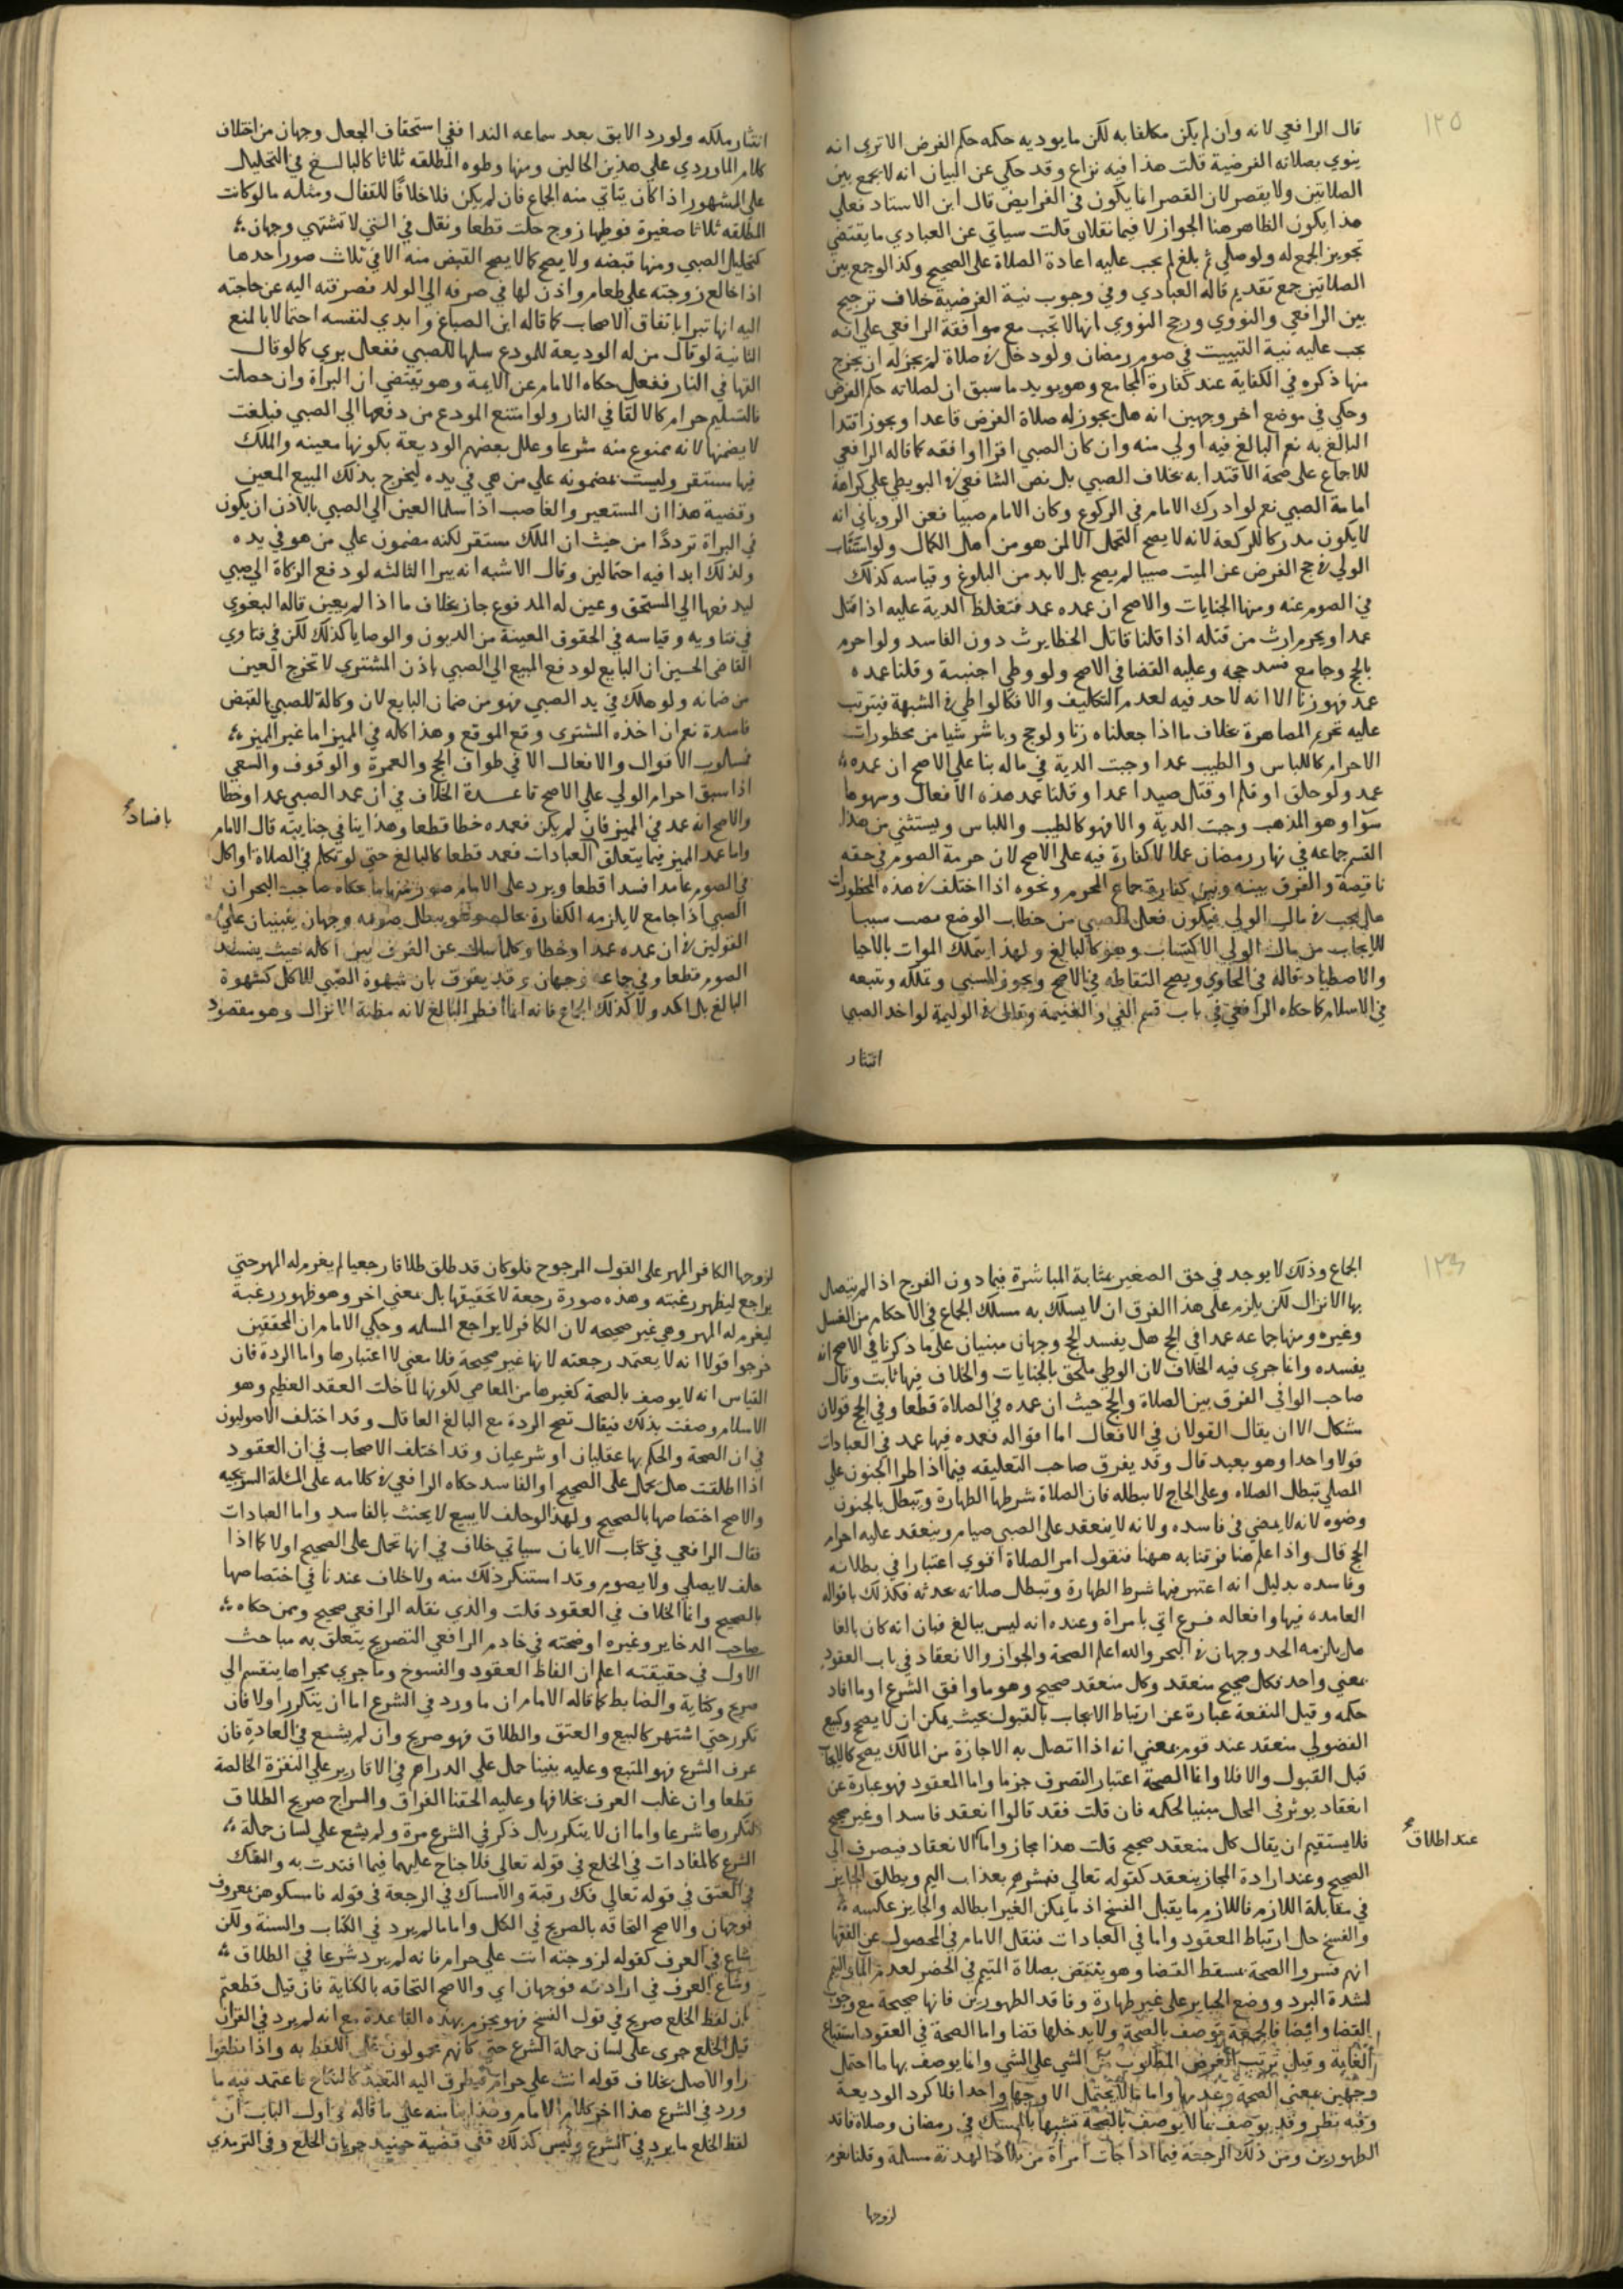 ١٢٥
قال الرافعي لانه وان لم يكن مكلفا به لكن ما يوديه حكمه حكم الفرض الا تري انه
ينوي بصلاته الفرضية قلت هذا فيه نزاع وقد حكي عن البيان انه لا يجمع بين
الصلاتين ولا يقصر لان القصر انما يكون في الفرايض قال ابن الاستاد فعلي
هذا يكون الظاهر هنا الجواز لا فيما نقلان قلت سياتي عن العبادي ما يقتضي
تجويز الجمع له ولو صلي ثم بلغ لم يجب عليه اعادة الصلاة علي الصحيح وكذا لو جمع بين
الصلاتين جمع تقديم قاله العبادي وفي وجوب نية الفرضية خلاف ترجيح
بين الرافعي والنووي ورجح النووي انها لا تجب مع موافقة الرافعي علي انه
يجب عليه نية التبييت في صوم رمضان ولو دخل في صلاة لم يجز له ان يخرج
منها ذكره في الكفاية عند كفارة المجامع وهو يويد ما سبق ان لصلاته حكم الفرض
وحكي في موضع اخر وجهين انه هل يجوز له صلاة الفرض قاعدا ويجوز اقتدا
البالغ به نعم البالغ فيه اولي منه وان كان الصبي اقرا او افقه كما قاله الرافعي
للاجماع علي صحة الاقتدا به بخلاف الصبي بل نص الشافعي في البويطي علي كراهة
امامة الصبي نعم لو ادرك الامام في الركوع وكان الامام صبيا فعن الروياني انه
لا يكون مدركا للركعة لانه لا يصح التحمل الا لمن هو من اهل الكمال ولو استناب
الولي في حج الفرض عن الميت صبيا لم يصح بل لا بد من البلوغ وقياسه كذلك
في الصوم عنه ومنها الجنايات والاصح ان عمده عمد فتغلظ الدية عليه اذا قتل
عمدا ويحرم ارث من قتله اذا قلنا قاتل الخطا يرث دون الفاسد ولو احرم
بالحج وجامع فسد حجه وعليه القضا في الاصح ولو وطي اجنبية وقلنا عمده
عمد فهو زنا الا انه لا حد فيه لعدم التكليف والا فكالواطي في الشبهة فيترتب
عليه تحريم المصاهرة بخلاف ما اذا جعلناه زنا ولو حج وباشر شيا من محظورات
الاحرام كاللباس والطيب عمدا وجبت الدية في ماله بنا علي الاصح ان عمده
عمد ولو حلق او قلم او قتل صيدا عمدا وقلنا عمد هذه الافعال وسهوها
سوا وهو المذهب وجبت الدية والا فهو كالطيب واللباس ويستثني من هذا
القسم جماعه في نهار رمضان عمدا لا كفارة فيه علي الاصح لان حرمة الصوم في حقه
ناقصة والفرق بينه وبين كفارة جماع المحرم ونحوه اذا اختلف في هذه المحظورات
هل تجب في مال الولي فيكون فعل الصبي من خطاب الوضع نصب سببا
للايجاب من مال الولي الاكتساب وهو كالبالغ ولهذا يتملك الموات بالاحيا
والاصطياد قاله في الحاوي ويصح التقاطه في الاصح ويجوز للسبي وتملكه وتبعه
في الاسلام كما حكاه الرافعي في باب قسم الفي والغنيمة وقال في الوليمة لو اخذ الصبي
انتثار
انتثار ملكه ولو رد الابق بعد سماعه الندا ففي استحقاق الجعل وجهان من اختلاف
كلام الماوردي علي هذين الحالين ومنها وطوه المطلقه ثلاثا كالبالغ في التحليل
علي المشهور اذا كان يتاتي منه الجماع فان لم يكن فلا خلافا للقفال ومثله ما لو كانت
المطلقه ثلاثا صغيرة فوطيها زوج حلت قطعا ونقل في التي لا تشتهي وجهان
كتحليل الصبي ومنها قبضه ولا يصح كما لا يصح القبض منه الا في ثلاث صور احدها
اذا خالع زوجته علي طعام واذن لها في صرفه الي الولد فصرفته اليه عن حاجته
اليه انها تبرا باتفاق الاصحاب كما قاله ابن الصباغ وابدي لنفسه احتمالا بالمنع
الثانية لو قال من له الوديعة للمودع سلمها للصبي ففعل بري كما لو قال
القها في النار ففعل حكاه الامام عن الايمة وهو يقتضي ان البراة وان حصلت
فالتسليم حرام كالالقا في النار ولو امتنع المودع من دفعها الي الصبي فبلغت
لا يضمنها لانه ممنوع منه شرعا وعلل بعضهم الوديعة بكونها معينه والملك
فيها مستقر وليست مضمونه علي من هي في يده ليخرج بذلك المبيع المعين
وقضية هذا ان المستعير والغاصب اذا سلما العين الي الصبي بالاذن ان يكون
في البراة ترددا من حيث ان الملك مستقر لكنه مضمون علي من هو في يده
ولذلك ابدا فيه احتمالين وقال الاشبه انه يبرا الثالثه لو دفع الزكاة الي صبي
ليدفعها الي المستحق وعين له المدفوع جاز بخلاف ما اذا لم يعين قاله البغوي
في فتاويه وقياسه في الحقوق المعينة من الديون والوصايا كذلك لكن في فتاوي
القاضي الحسين ان البايع لو دفع المبيع الي الصبي باذن المشتري لا تخرج العين
من ضمانه ولو هلك في يد الصبي فهو من ضمان البايع لان وكالة للصبي بالقبض
فاسدة نعم ان اخذه المشتري وقع الموقع وهذا كله في المميز اما غير المميز
فمسلوب الاقوال والافعال الا في طواف الحج والعمرة والوقوف والسعي
اذا سبق احرام الولي علي الاصح قاعدة الخلاف في ان عمد الصبي عمد او خطا
والاصح انه عمد في المميز فان لم يكن فعمده خطا قطعا وهذا يتافي جنايته قال الامام
واما عمد المميز فيما يتعلق بالعبادات فعمد قطعا كالبالغ حتي لو تكلم في الصلاة او اكل
في الصوم عامدا فسدا قطعا ويرد علي الامام صور منها ما حكاه صاحب البحر ان
الصبي اذا جامع لا يلزمه الكفارة وهل يبطل صومه وجهان يبنيان علي
القولين في ان عمده عمد او خطا وكما سلك عن الفرق بين اكله حيث يفسد
الصوم قطعا وفي جماعه وجهان وقد يفرق بان شهوة الصبي للاكل كشهوة
البالغ بل اكد ولا كذلك الجماع فانه انما افطر البالغ لانه مظنة الانزال وهو مقصود
بافساد
١٢٦
الجماع وذلك لا يوجد في حق الصغير بمثابة المباشرة فيما دون الفرج اذا لم يتصل
بها الانزال لكن يلزم علي هذا الفرق ان لا يسلك به مسلك الجماع في الاحكام من الغسل
وغيره ومنها جماعه عمدا في الحج هل يفسد الحج وجهان مبنيان علي ما ذكرنا في الاصح انه
يفسده وانما جري فيه الخلاف لان الوطي ملحق بالجنايات والخلاف فيها ثابت وقال
صاحب الوافي الفرق بين الصلاة والحج حيث ان عمده في الصلاة قطعا وفي الحج قولان
مشكل الا ان يقال القولان في الافعال اما اقواله فعمده فيها عمد في العبادات
قولا واحدا وهو بعيد قال وقد يفرق صاحب التعليقه فيما اذا طرا الجنون علي
المصلي تبطل الصلاه وعلي الحاج لا يبطله فان الصلاة شرطها الطهارة وتبطل بالجنون
وضوه لانه لا يمضي في فاسده ولانه لا ينعقد علي الصبي صيام وينعقد عليه احرام
الحج قال واذا علم هنا فرقنا به ههنا فنقول امر الصلاة اقوي اعتبارا في بطلانه
وفاسده بدليل انه اعتبر فيها شرط الطهارة وتبطل صلاته بحدثه فكذلك باقواله
العامده فيها وافعاله فرع اتي بامراة وعنده انه ليس ببالغ فبان انه كان بالغا
هل يلزمه الحد وجهان في البحر والله اعلم الصحة والجواز والانعقاد في باب العقود
بمعني واحد فكل صحيح منعقد وكل منعقد صحيح وهو ما وافق الشرع او ما افاد
حكمه وقيل النفعة عبارة عن ارتباط الايجاب بالقبول بحيث يمكن ان لا يصح وكبيع
الفضولي منعقد عند قوم بمعني انه اذا اتصل به الاجازة من المالك يصح كالايجاب
قبل القبول والا فلا وانما الصحة اعتبار التصرف جزما واما المعقود فهو عبارة عن
انعقاد يوثر في المحال مبنيا لحكمه فان قلت فقد قالوا انعقد فاسدا وغير صحيح
فلا يستقيم ان يقال كل منعقد صحيح قلت هذا مجاز واما الانعقاد فيصرف الي
الصحيح وعند ارادة المجاز ينعقد كقوله تعالي فبشرهم بعذاب اليم ويطلق الجايز
في مقابلة اللازم فاللازم ما يقبل الفسخ اذ ما يمكن الغير ابطاله والجايز عكسه
والفسخ حل ارتباط المعقود واما في العبادات فنقل الامام في المحصول عن الفقها
انهم فسروا الصحة بسقط القضا وهو ينتقض بصلاة المتيمم في الحضر لعدم الما والتيمم
لشدة البرد ووضع الجباير علي غير طهارة وفاقد الطهورين فانها صحيحة مع وجوب
القضا وايضا فالجمعة توصف بالصحة ولا يدخلها قضا واما الصحة في العقود استتباع
الغاية وقيل ترتب الغرض المطلوب من الشي علي الشي وانما يوصف بها ما احتمل
وجهين بمعني الصحة وعدمها واما ما لا يحتمل الا وجها واحدا فلا كرد الوديعة
وفيه نظر وقد يوصف ما لا يوصف بالصحة تشبها بالمسك في رمضان وصلاة فاقد
الطهورين ومن ذلك الرجعة فيما اذا جات امراة من بلاد الهدنة مسلمة وقلنا نغرم
لزوجها
عند اطلاق
لزوجها الكافر المهر علي القول المرجوح فلو كان قد طلق طلاقا رجعيا لم يغرم له المهر حتي
يراجع ليظهر رغبته وهذه صورة رجعة لا تحقيقها بل بمعني اخر وهو ظهور رغبة
ليغرم له المهر وهي غير صحيحه لان الكافر لا يراجع المسلمه وحكي الامام ان المحققين
خرجوا قولا انه لا يعتمد رجعته لانها غير صحيحة فلا معني لاعتبارها واما الردة فان
القياس انه لا يوصف بالصحة كغيرها من المعاصي لكونها لما حلت العقد العظيم وهو
الاسلام وصفت بذلك فيقال تصح الردة مع البالغ العاقل وقد اختلف الاصوليون
في ان الصحة والحكم بها عقليان او شرعيان وقد اختلف الاصحاب في ان العقود
اذا اطلقت هل يحمل علي الصحيح او الفاسد حكاه الرافعي في كلامه علي المسئلة السريجيه
والاصح اختصاصها بالصحيح ولهذا لو حلف لا يبيع لا يحنث بالفاسد واما العبادات
فقال الرافعي في كتاب الايمان سياتي خلاف في انها تحمل علي الصحيح اولا كما اذا
حلف لا يصلي ولا يصوم وقد استنكر ذلك منه ولا خلاف عندنا في اختصاصها
بالصحيح وانما الخلاف في العقود قلت والذي نقله الرافعي صحيح وممن حكاه
صاحب الدخاير وغيره اوضحته في خادم الرافعي التصريح يتعلق به مباحث
الاول في حقيقته اعلم ان الفاظ العقود والفسوخ وما جري مجراها ينقسم الي
صريح وكناية والضابط كما قاله الامام ان ما ورد في الشرع اما ان يتكرر اولا فان
تكرر حتي اشتهر كالبيع والعتق والطلاق فهو صريح وان لم يشع في العادة فان
عرف الشرع فهو المتبع وعليه بنينا حمل علي الدراهم في الاقارير علي النقرة الخالصة
قطعا وان غلب العرف بخلافها وعليه الحقنا الفراق والسراح صريح الطلاق
لتكررها شرعا واما ان لا يتكرر بل ذكر في الشرع مرة ولم يشع علي لسان حملة
الشرع كالمفادات في الخلع في قوله تعالي فلا جناح عليهما فيما افتدت به والفك
في العتق في قوله تعالي فك رقبة والامساك في الرجعة في قوله فامسكوهن بمعروف
فوجهان والاصح التحاقه بالصريح في الكل واما ما لم يرد في الكتاب والسنة ولكن
شاع في العرف كقوله لزوجته انت علي حرام فانه لم يرد شرعا في الطلاق
وشاع العرف في ارادته فوجهان اي والاصح التحاقه بالكناية فان قيل قطعتم
بان لفظ الخلع صريح في قول الفسخ فهو يجزم بهذه القاعدة مع انه لم يرد في القران
قيل الخلع جري علي لسان حملة الشرع حتي كانهم محمولون علي اللفظ به واذا نظروا
راو الاصل بخلاف قوله انت علي حرام فيطرق اليه التقييد كالنكاح فاعتمد فيه ما
ورد في الشرع هذا اخر كلام الامام وهذا بنا منه علي ما قاله في اول الباب ان
لفظ الخلع ما يرد في الشرع وليس كذلك ففي قضية حينيد جريان الخلع وفي الترمدي